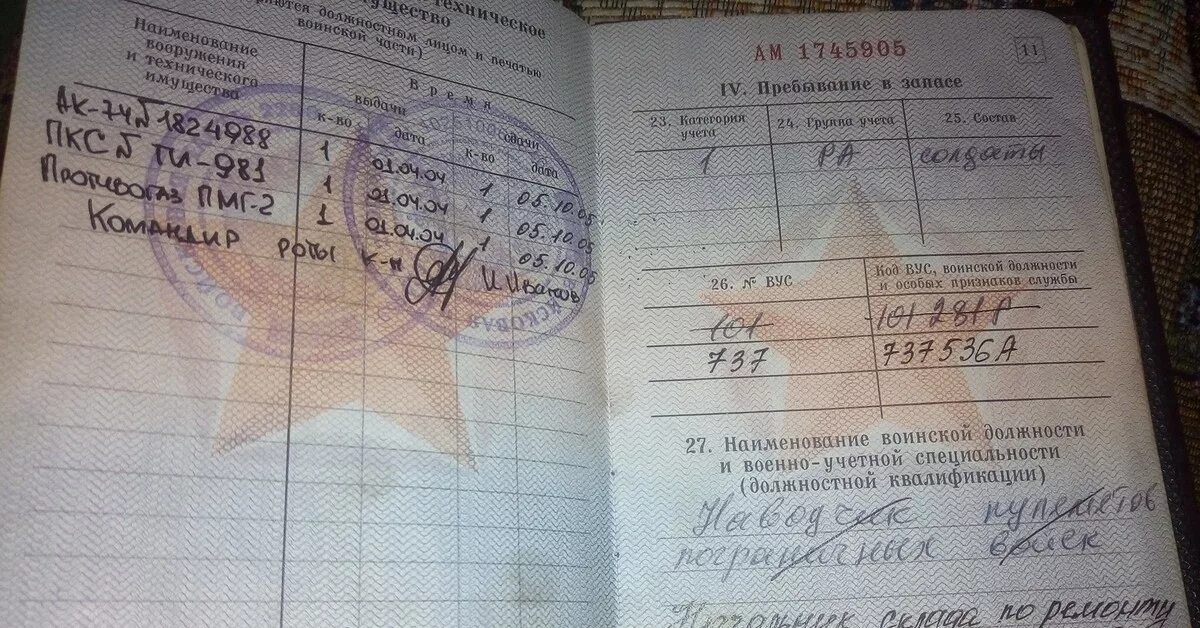 техническое
имущество
должностным лицом и печатью
воинской части)
Наименование
вооружения
и технического
имущества
Время
выдачи
сдачи
к-во
дата
к-во
дата
АК-74 № 1824988 1 01.04.04 1 05.10.05
ПКС № ТИ-981 1 01.04.04 1 05.10.05
Противогаз ПМГ-2 1 01.04.04 1 05.10.05
Командир роты к-н И.Иванов
АМ 1745905
11
IV. Пребывание в запасе
23. Категория
учета
24. Группа учета
25. Состав
1 РА солдаты
26. № ВУС
Код ВУС, воинской должности
и особых признаков службы
101 101 281 Р
737 737536А
27. Наименование воинской должности
и военно-учетной специальности
(должностной квалификации)
Наводчик пулеметов
пограничных войск
Начальник склада по ремонту